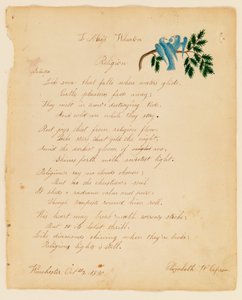 To Miss Wharton
Religion
Like snow that falls where waters glide,
Earth's pleasures fade away;
They melt in time's destroying tide,
And cold are while they stay.
But joys that from religion flow,
Like stars that gild the night,
Amid the darkest gloom of woe,
Shine forth with sweetest light.
Religion's ray no clouds obscure;
But o'er the christian's soul
It sheds a radiance calm and pure,
Though tempests round him roll.
His heart may break with sorrow's stroke;
But to its latest thrill,
Like diamonds shining when they're broke,
Religion lights it still.
Winchester Oct
Elizabeth W